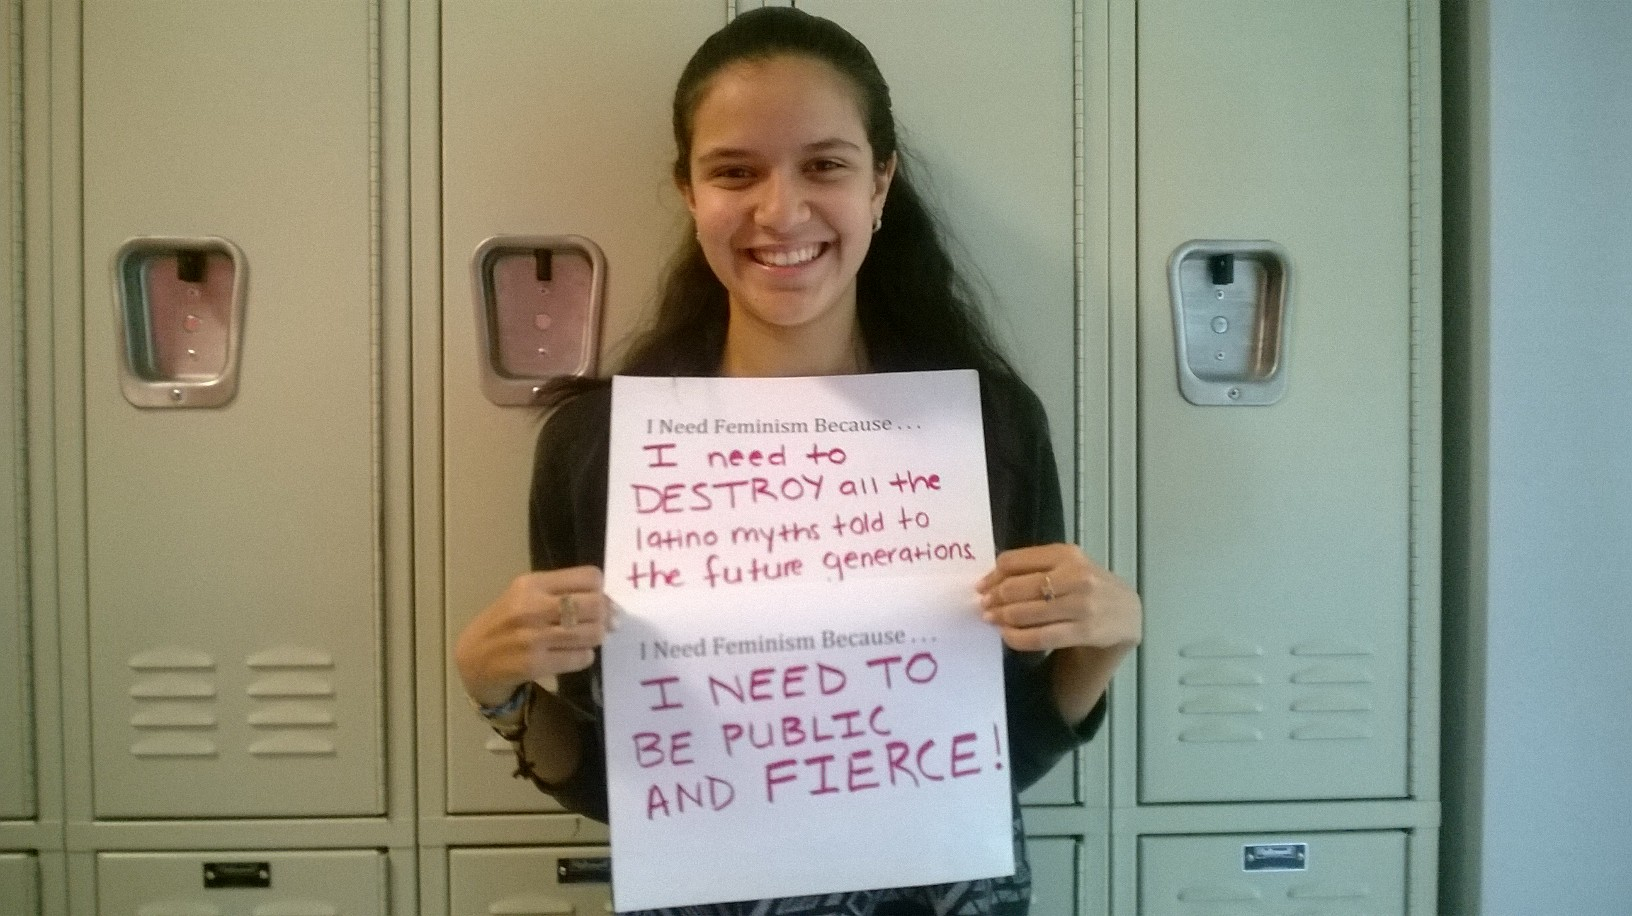 I Need Feminism Because . . .
I need to
DESTROY all the
latino myths told to
the future generations.
I Need Feminism Because . . .
I NEED TO
BE PUBLIC
AND FIERCE!